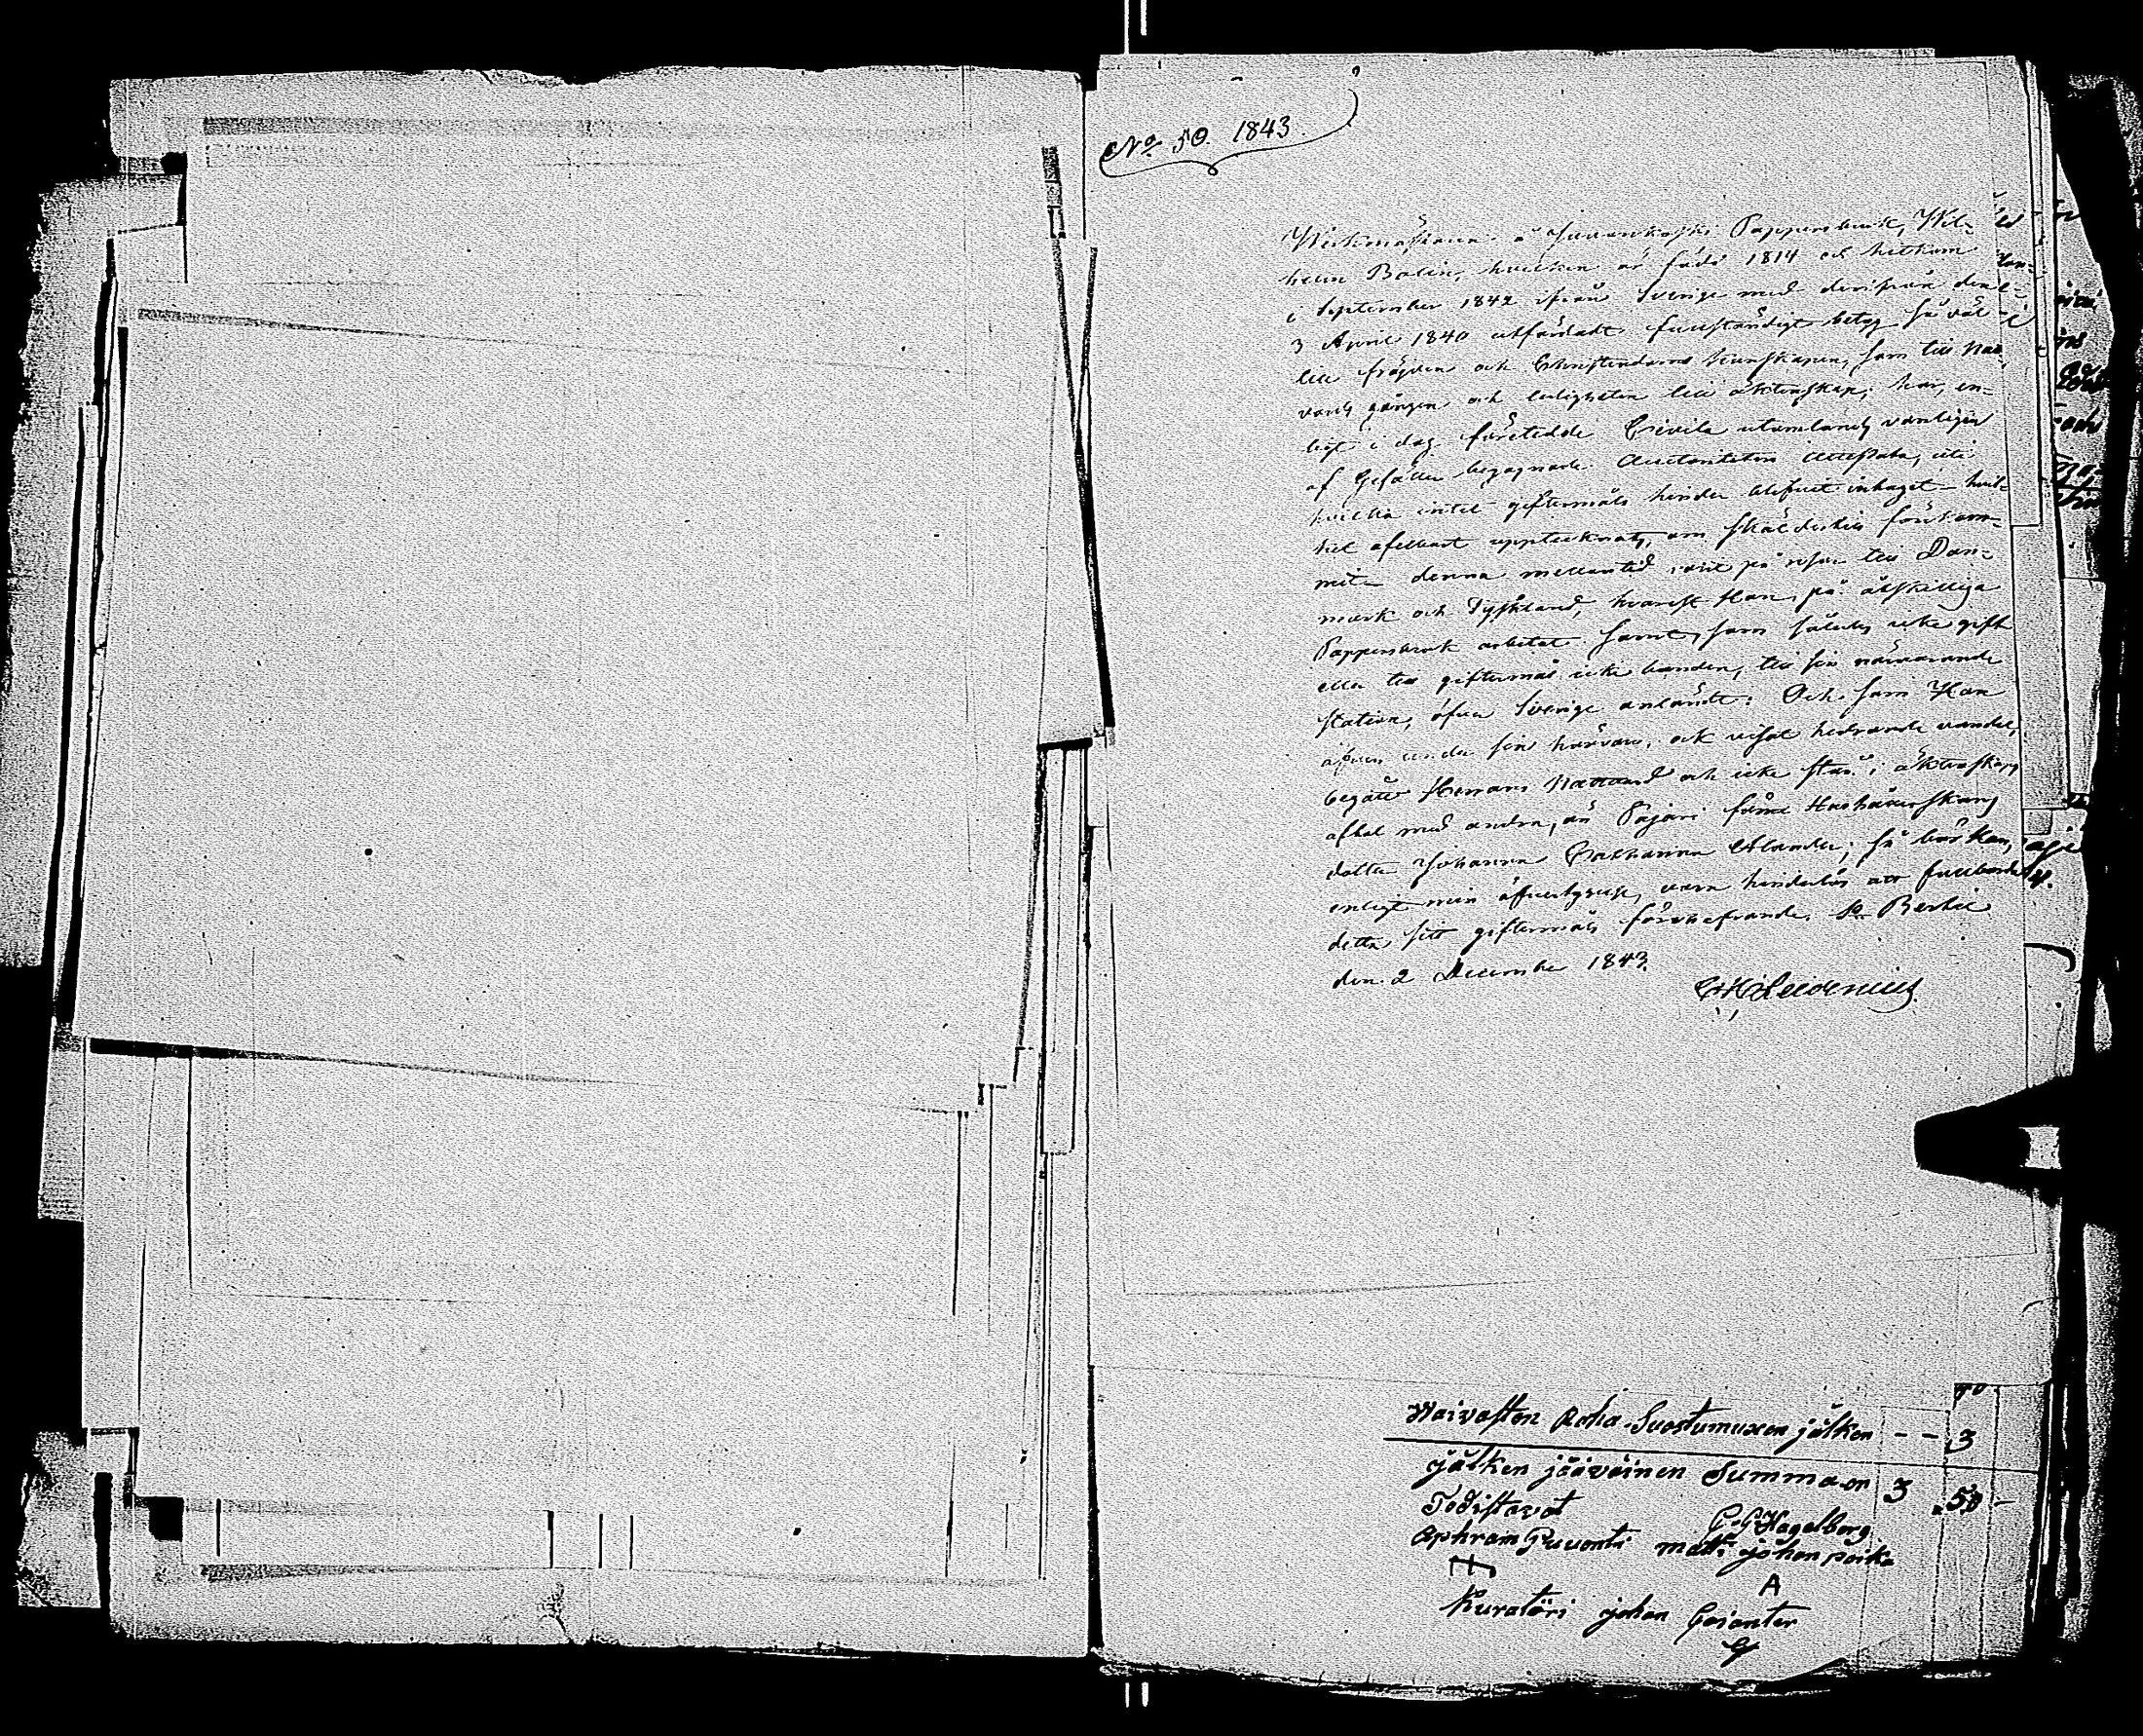 No 50. 1843.
Werkmästaren å Juvankoski Pappersbruk, Wil-
helm Bolin, hvilken är född 1814 och hitkom
i September 1842 ifrån Sverige med derifrån den
3 April 1840 utfärdadt fullständigt betyg så väl
till frägden och Christendoms kunskapen, som till Natt-
vards gången och ledigheten till äktenskap; har, en-
ligt i dag företedde Civila utomlands vanligen
af Gesäller begagnade Auctoriteters Attestata, uti
hvilka intet giftermåls hinder blifvit intaget - hvil-
ket ofelbart upptecknats, om skäl dertill förekom-
mit - denna mellantid varit på resor till Dan-
mark och Tyskland, hvarest Han på åtskilliga
Pappersbruk arbetat samt, som således icke gift
eller till giftermål icke bunden, till sin närvarande
station, öfver Sverige anländt: Och som Han
äfven under sin härvaro, ock visat hedrande vandel,
begått Herrans Nattvard och icke står i äktenskaps
aftal med andra, än Pajari
dotter Johanna Catharina så bör Han,
enligt min öfvertygelse, vara hinderlös att fullborda
detta sitt giftermåls förehafvande.
den 2 December 1843.
Waivasten Raha Suostumuxen jälken - - 3
jälken jääväinen Summa on 3 50 -
Todistavat
G. G. Hagelberg
Aphram Matti Johan poika
A
Kuratöri Johan